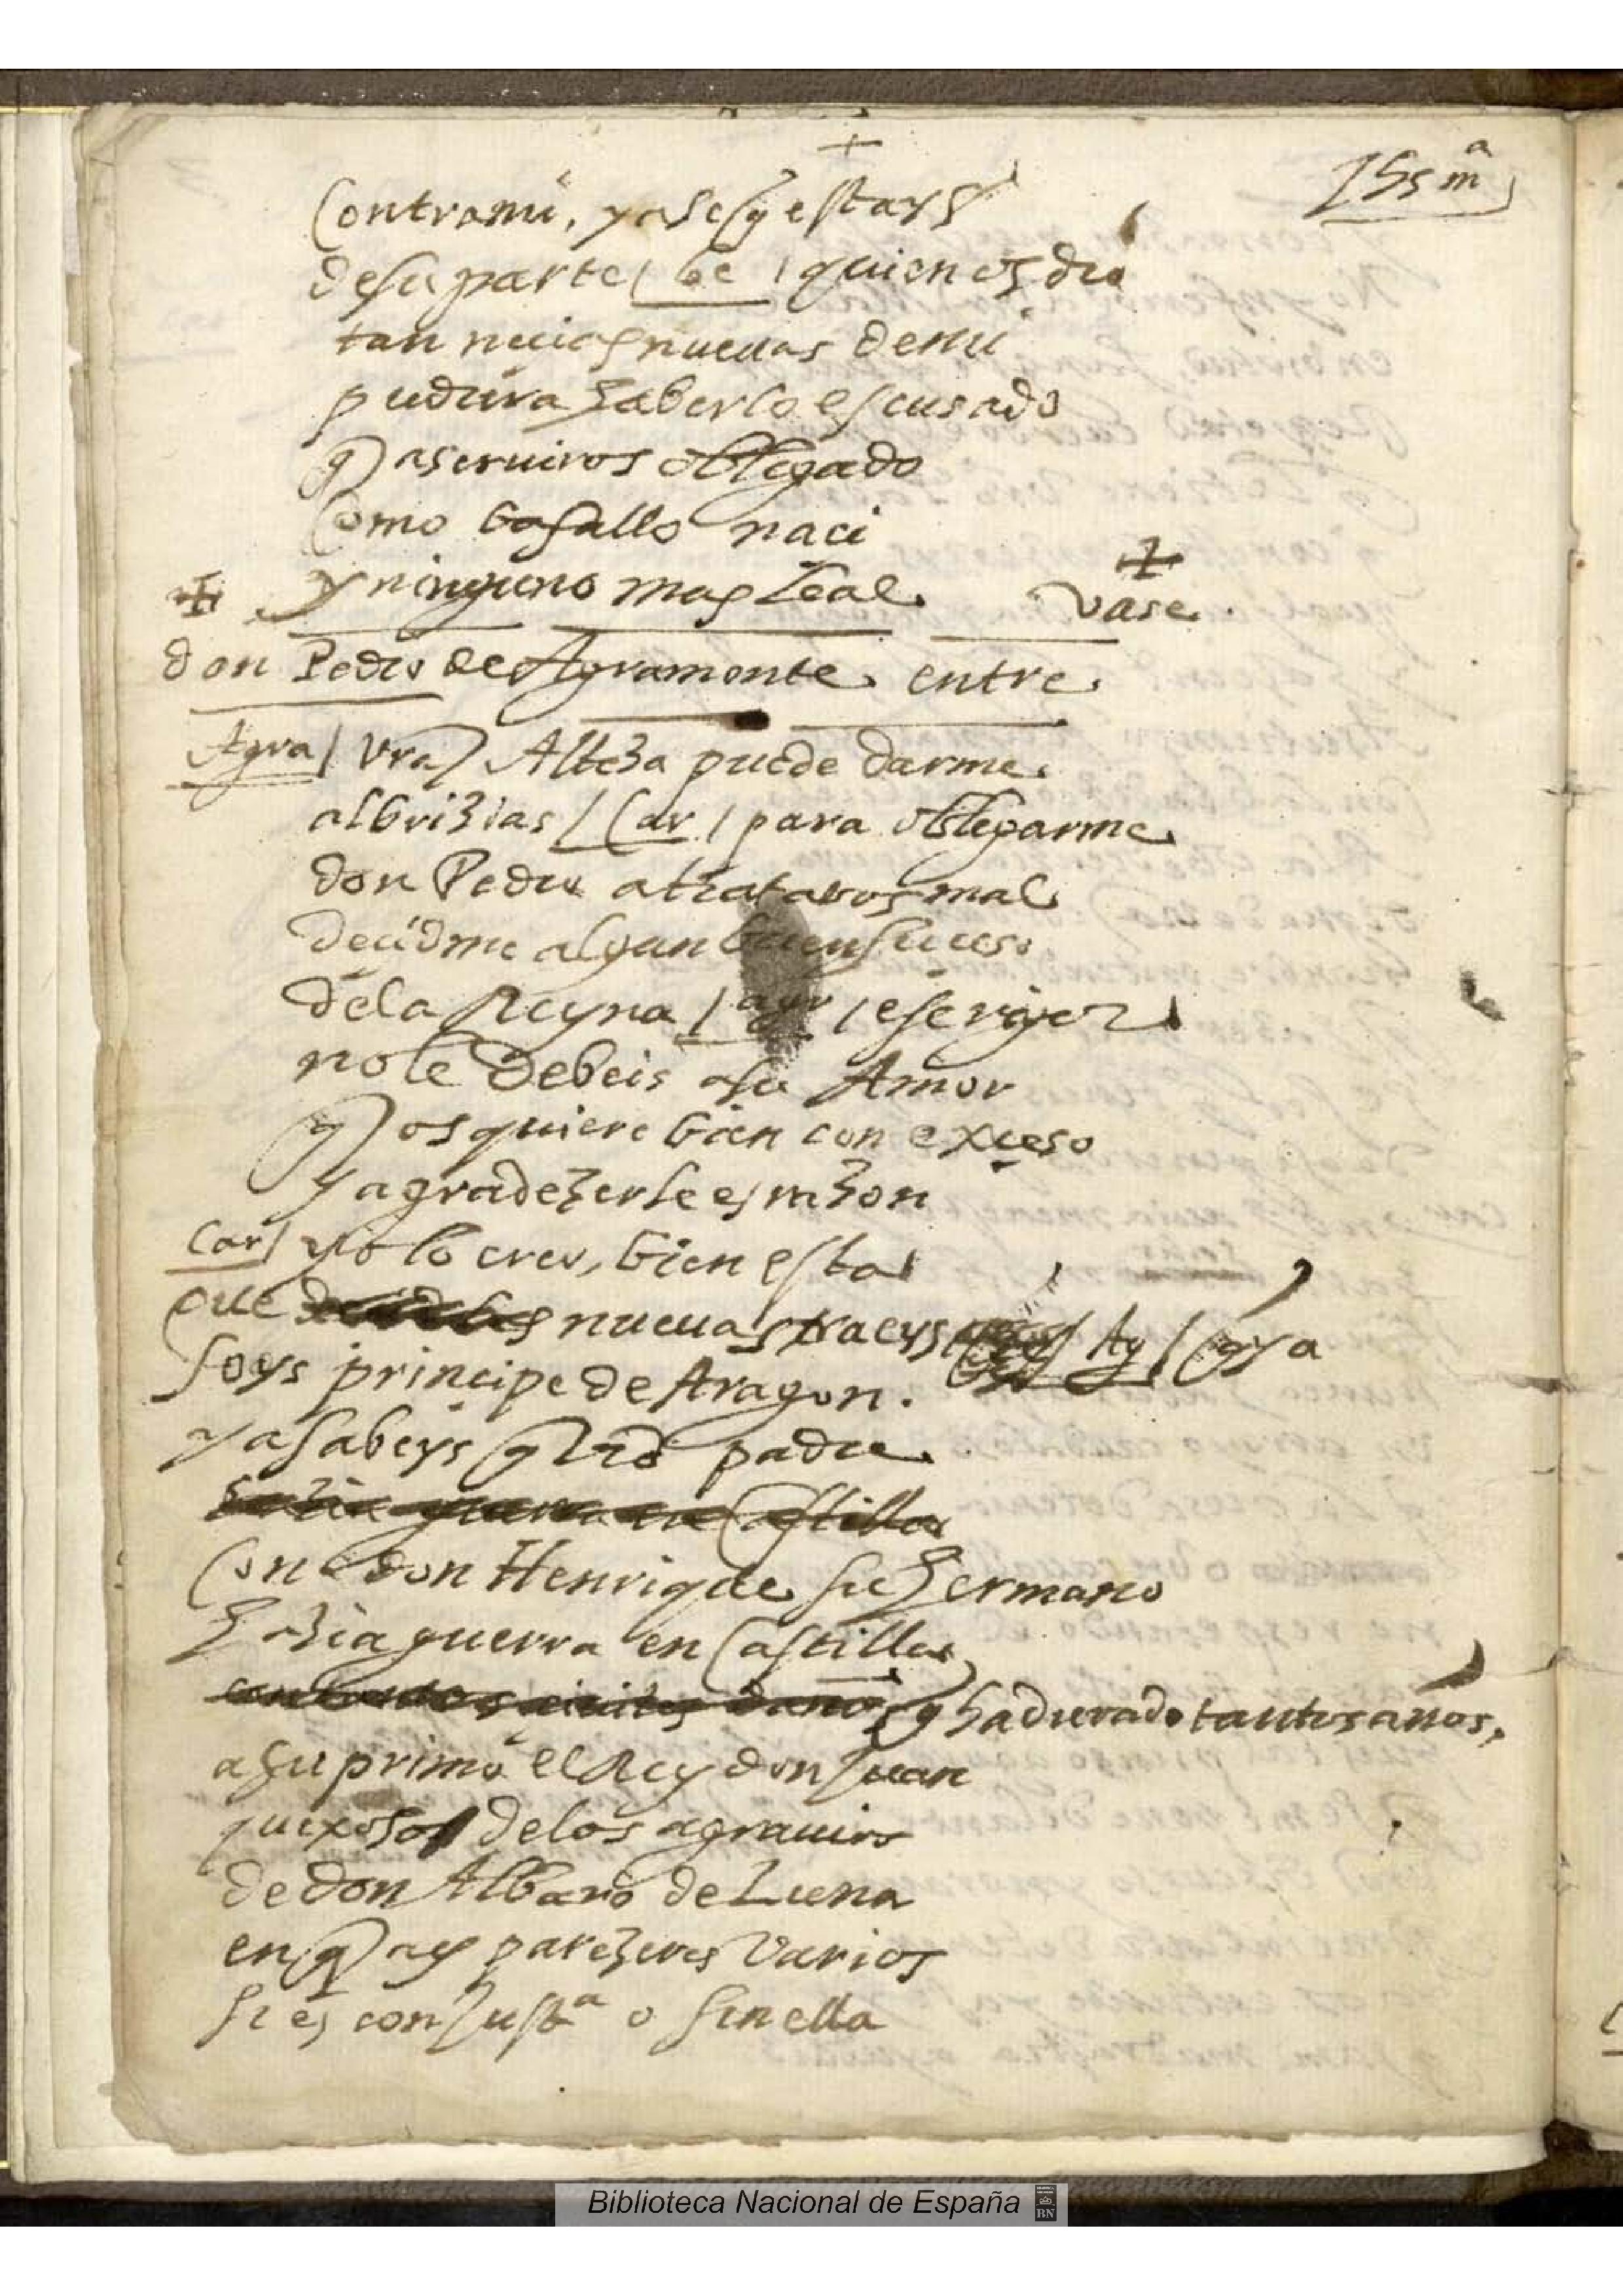 Jhs mª
Contra mi, ya se q estays
de su parte / be / quien os dio
tan necias nuevas de mi
pudiera haberlo escusado
q a serviros obligado
como basallo naci
y ninguno mas leal. Vase.
don Pedro de Agramonte entre
Agra / Vra Alteza puede darme
albrizias / Car / para obligarme
don Pedro a trataros mal
decidme algun buen suceso
de la Reyna / agr / ese rigor
no le debeis a su Amor
q os quiere bien con exceso
y agradezerle es razon
Car / yo lo creo, bien esta
que nuevas traeys / Ag / q ya
soys principe de Aragon.
ya sabeys q vro padre
Castilla
con don Henrique su hermano
hazia guerra en Castilla
q ha durado tantos años,
a su primo el Rey don Juan
quexoso de los agravios
de don Albaro de Luna
en q ay parezeres varios
si es con Justª o sin ella
Biblioteca Nacional de España
BN